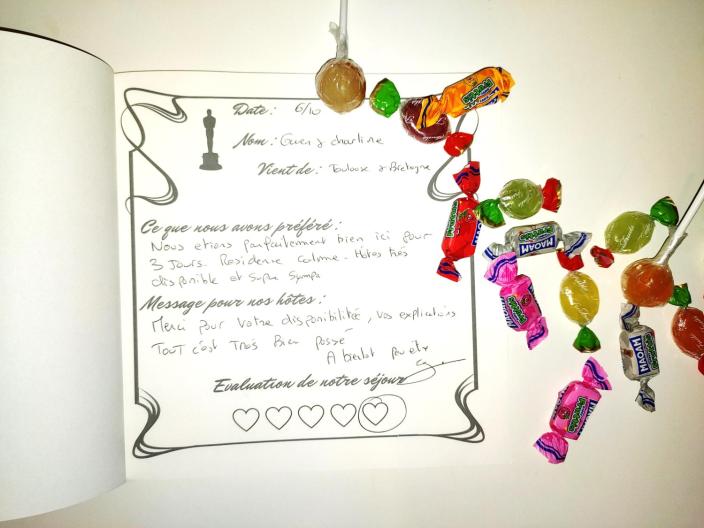 Date : 6/10
Nom : Gwen & charline
Vient de : Toulouse & Bretagne
Ce que nous avons préféré :
Nous etions parfaitement bien ici pour
3 Jours. Residence calme. Hotes très
disponible et Supra Sympa
Message pour nos hôtes :
Merci pour votre disponibilité, vos explications
TOUT c'est Trois Bien passé
A bientot peu etr
Evaluation de notre séjour
MAOAM
MAOAM